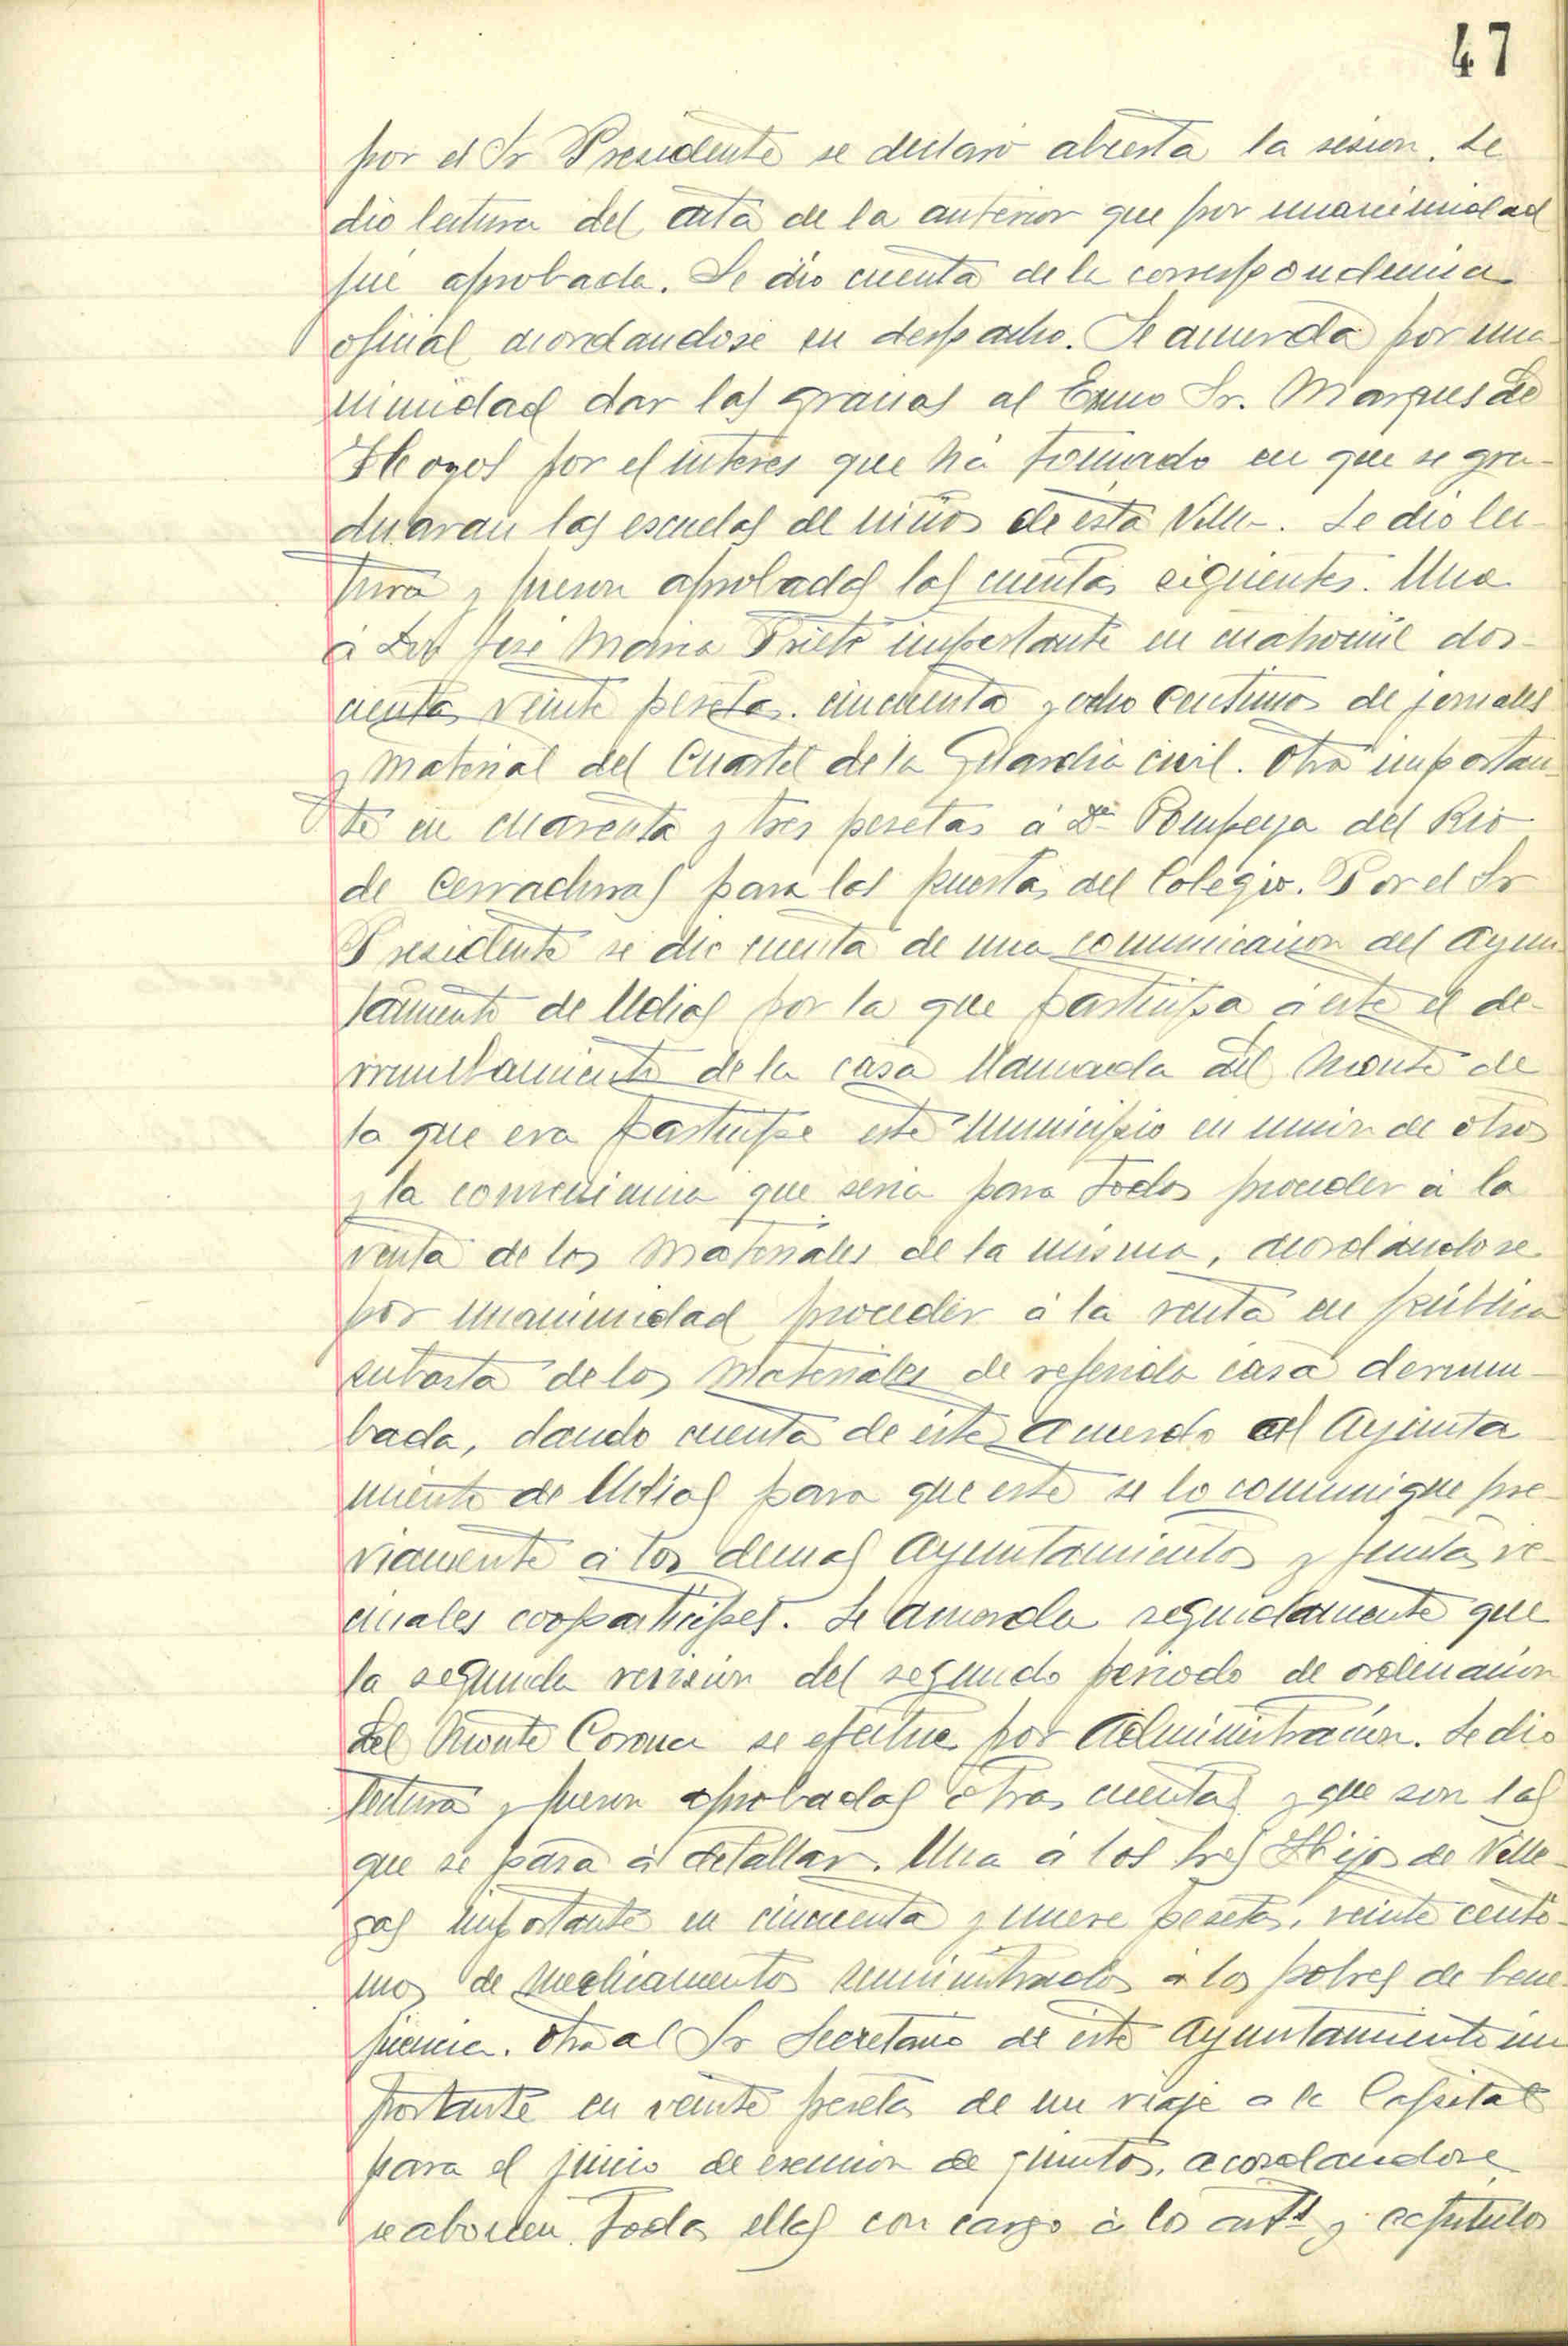 47
por el Sr Presidente se declaró abierta la sesion. Se
dio lectura del acta de la anterior que por unanimidad
fué aprobada. Se dio cuenta de la correspondencia
oficial acordandose su despacho. Se acuerda por una-
nimidad dar las gracias al Exmo Sr. Marques de
Hoyos por el interes que há tomado en que se gra-
duaran las escuelas de niños de esta Villa. Se dio lec-
tura y fueron aprobadas las cuentas siguientes. Una
á Don José Maria Prieto importante en cuatromil dos-
cientas veinte pesetas cincuenta y ocho centimos de jornales
y material del Cuartel de la Guardia civil. Otra importan-
te en cuarenta y tres pesetas á Dª Pompeya del Rio
de cerraduras para las puertas del Colegio. Por el Sr
Presidente se dio cuenta de una comunicacion del Ayun-
tamiento de Udias por la que participa á este el de-
rrumbamiento de la casa llamada del Monte de
la que era participe este Municipio en union de otros
y la conveniencia que seria para todos proceder á la
venta de los materiales de la misma, acordándose
por unanimidad proceder á la venta en pública
subasta de los materiales de referida casa derrum-
bada, dando cuenta de este acuerdo al Ayunta
miento de Udias para que este se lo comunique pre-
viamente á los demas Ayuntamientos y Juntas ve-
cinales coopartícipes. Se acuerda seguidamente que
la segunda revision del segundo periodo de ordenacion
del Monte Corona se efectue por Administracion. Se dio
lectura y fueron aprobadas otras cuentas y que son las
que se pasa á detallar. Una á los Sres Hijos de Ville-
gas importante en cincuenta y nueve pesetas, veinte centi-
mos de medicamentos suministrados á los pobres de bene-
ficencia. Otra al Sr Secretario de este Ayuntamiento im
portante en veinte pesetas de un viaje a la Capital
para el juicio de exencion de quintos, acordandose
se abonen todas ellas con cargo á los artˢ y capitulos